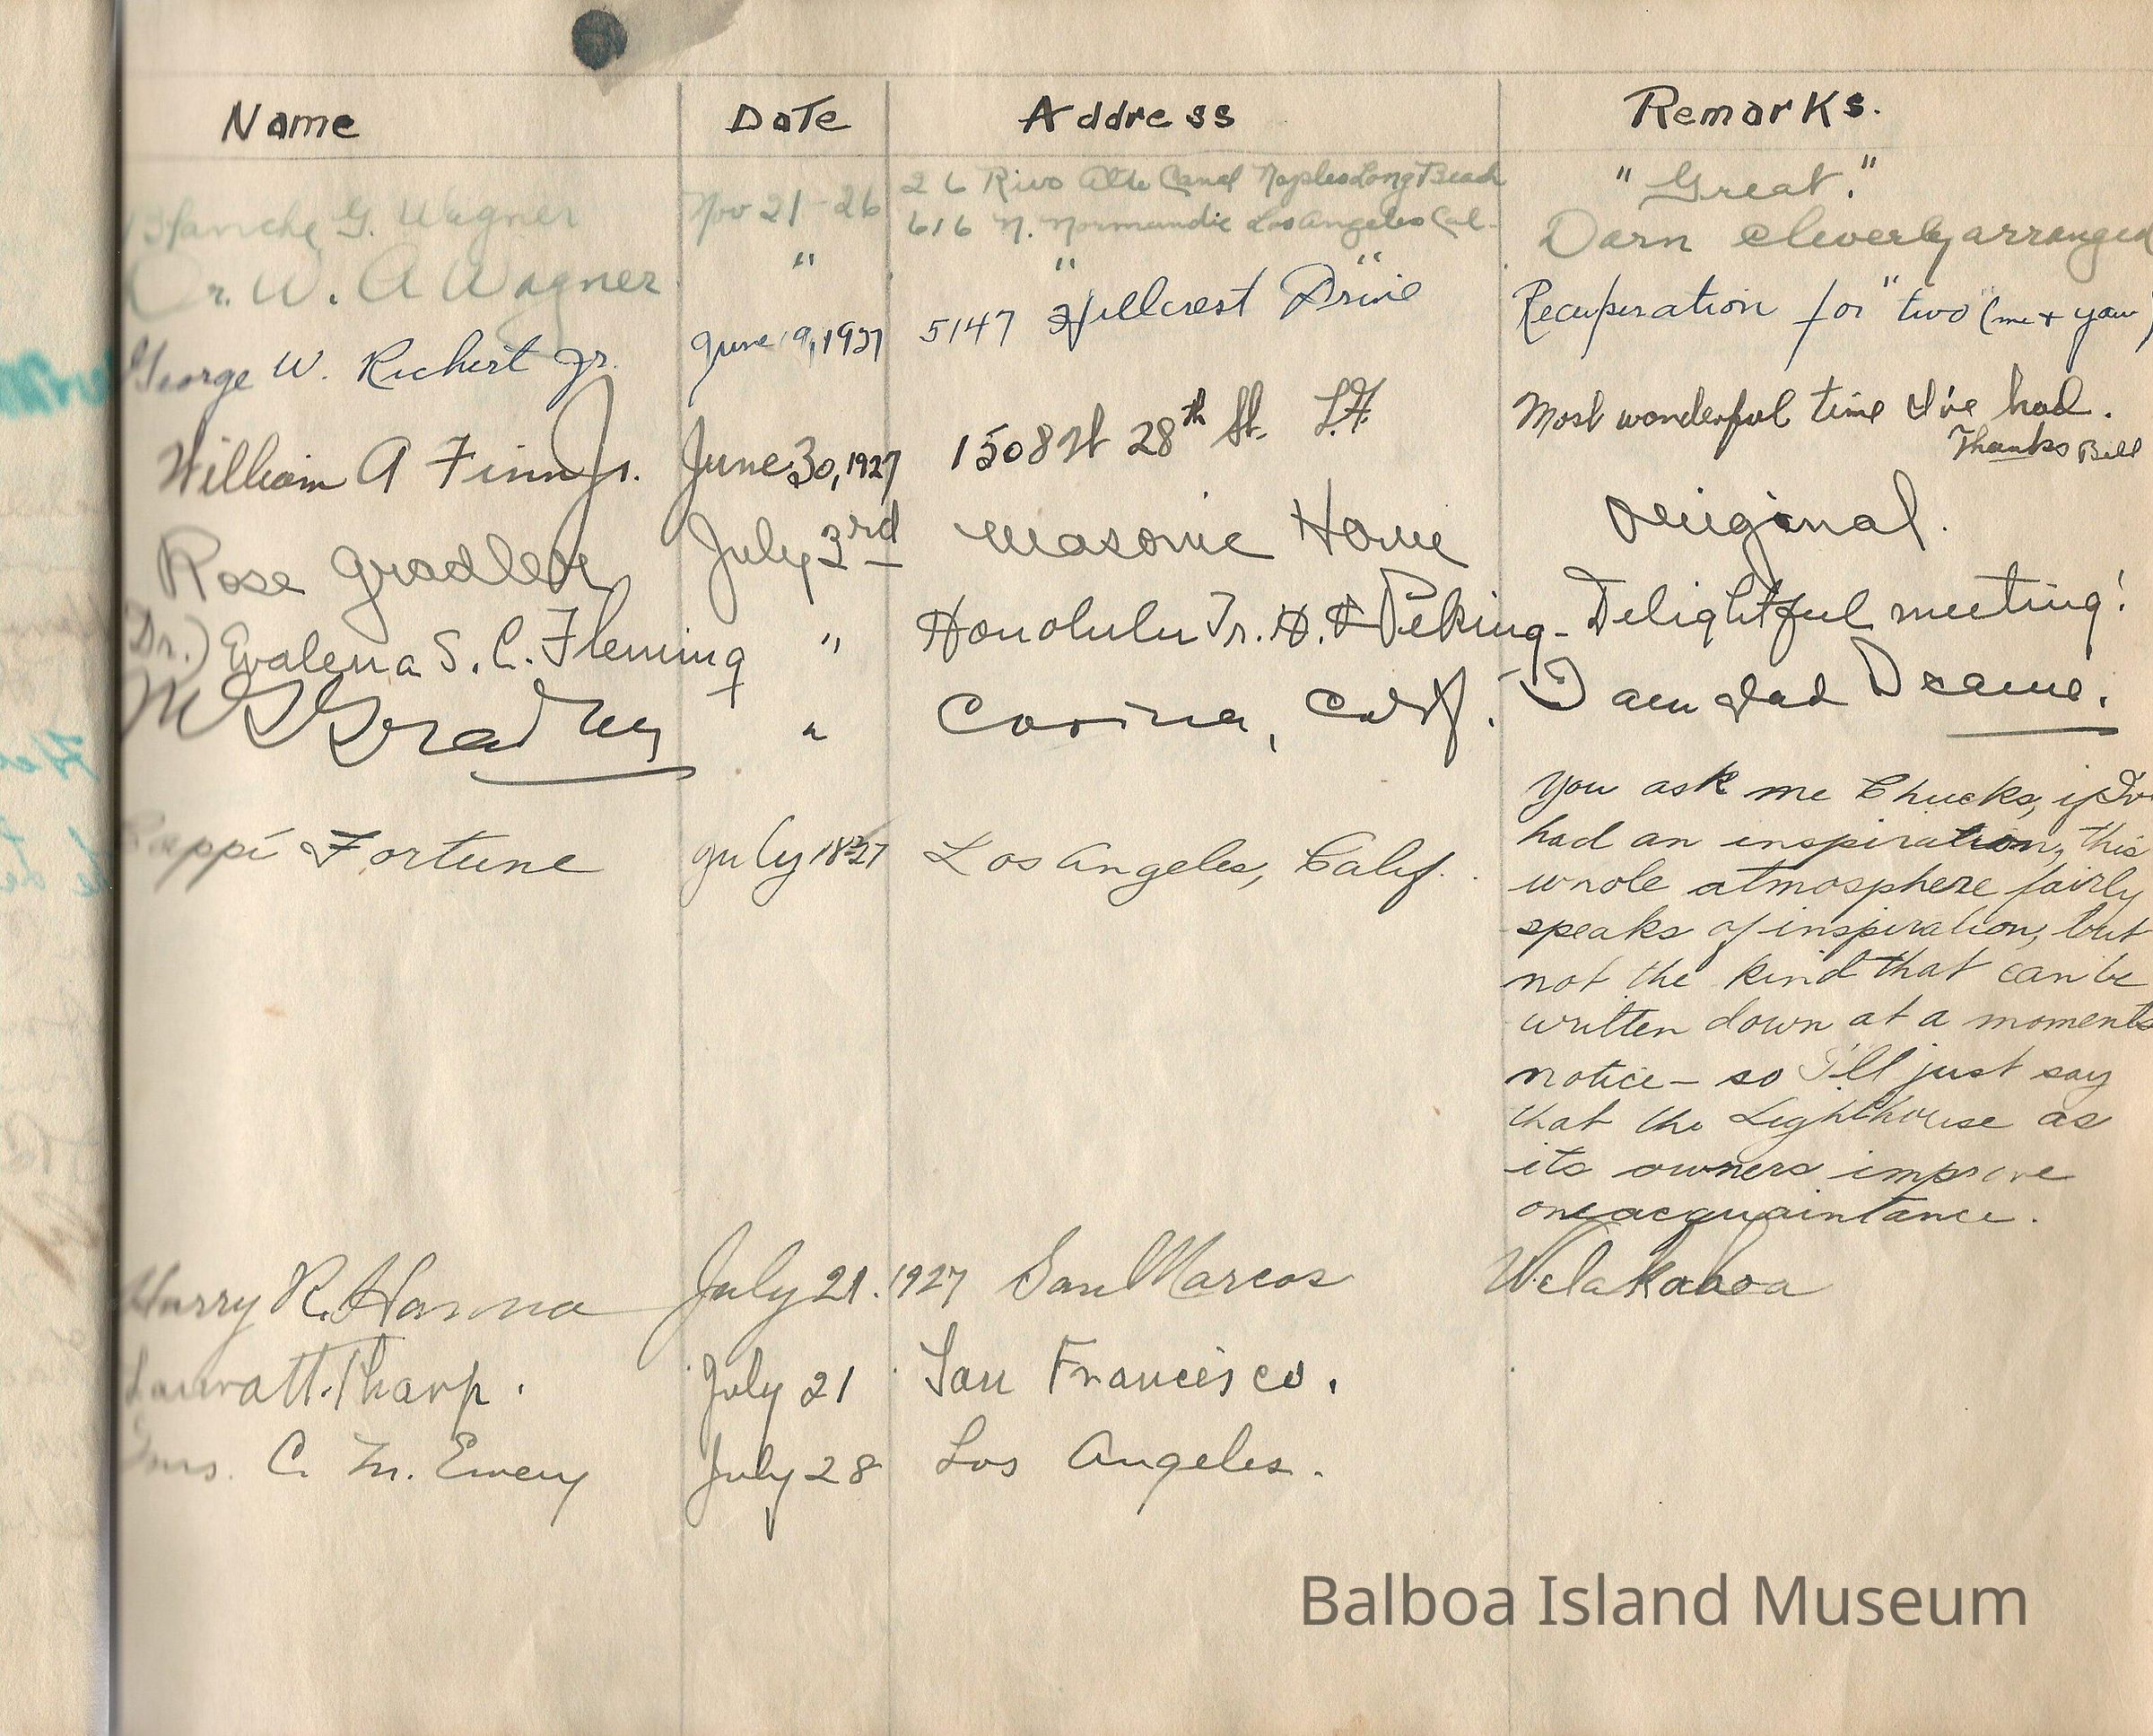 Name Date Address Remarks.
Blanche G. Wagner Nov 21-26 26 Rivo Alto Canal Naples Long Beach "Great."
616 N. Normandie Los Angeles Cal. Darn cleverly arranged
Dr. W. A Wagner " " "
George W. Richert Jr. June 9, 1927 5147 Hillcrest Drive Recuperation for "two" (me +
William A Finn Jr. June 30, 1927 1508 W 28th St. Most wonderful time I've had.
Thanks Bill
Rose Gradler July 3rd Masonic Home Original.
(Dr.) Evalena S. C. Fleming " Honolulu T. H. & Peking - Delightful meeting!
Bradley " Covina, Calif. I am glad I came.
Fortune July 18 27 Los Angeles, Calif. You ask me Chucks, if I've
had an inspiration, this
whole atmosphere fairly
speaks of inspiration, but
not the kind that can be
written down at a moments
notice - so I'll just say
that the Lighthouse as
its owners improve
on acquaintance.
Harry R. Hanna July 21. 1927 San Marcos Welakahoa
Tharp. July 21 San Francisco.
Mrs. C. M. Emery July 28 Los Angeles.
Balboa Island Museum